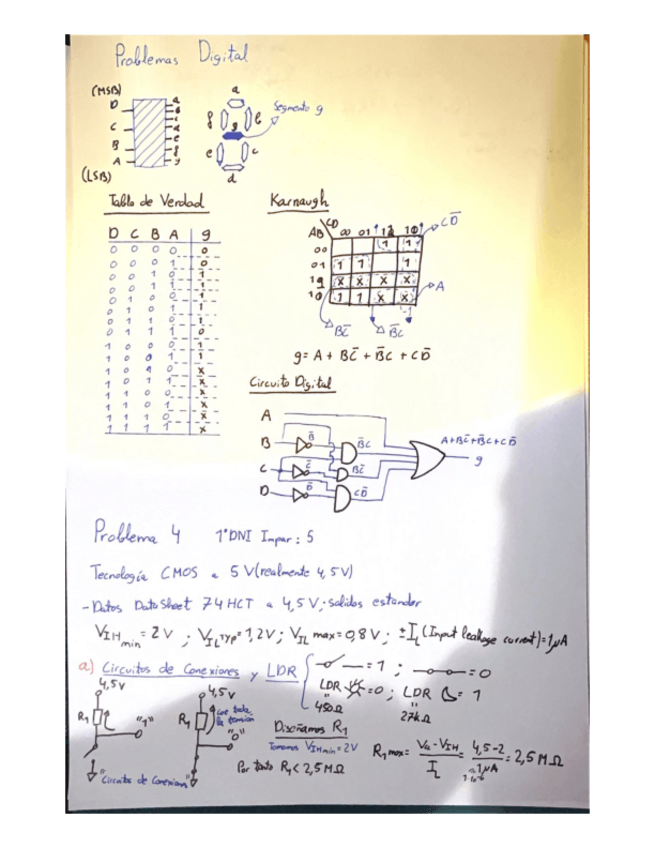 Problemas Digital
(MSB)
D
C
B
A
(LSB)
a
b
c
d
e
f
g
a
f
b
g
e
c
d
Segmento g
Tabla de Verdad
D C B A g
0 0 0 0 0
0 0 0 1 0
0 0 1 0 1
0 0 1 1 1
0 1 0 0 1
0 1 0 1 1
0 1 1 0 1
0 1 1 1 0
1 0 0 0 1
1 0 0 1 1
1 0 1 0 X
1 0 1 1 X
1 1 0 0 X
1 1 0 1 X
1 1 1 0 X
1 1 1 1 X
Karnaugh
CD
AB 00 01 11 10
00 1 1
01 1 1 1
11 X X X X
10 1 1 X X
CD̅
A
BC̅
B̅C
g = A + BC̅ + B̅C + CD̅
Circuito Digital
A
B
C
D
B̅
C̅
D̅
B̅C
BC̅
CD̅
A+BC̅+B̅C+CD̅
g
Problema 4 1ºDNI Impar: 5
Tecnología CMOS a 5V (realmente 4,5V)
- Datos DataSheet 74HCT a 4,5V; salidas estandar
VIH min = 2V ; VIL Typ = 1,2V ; VIL max = 0,8V ; ±IL (Input leakage current) = 1μA
a) Circuitos de Conexiones y LDR
= 1 ; = 0
LDR = 0 ; LDR = 1
450Ω
27kΩ
4,5V
R1
"1"
4,5V
R1
cae toda
la tensión
"0"
"Circuitos de Conexiones"
Diseñamos R1
Tomamos VIHmin = 2V
Por tanto R1 < 2,5MΩ
R1max = Va - VIH / IL = 4,5-2 / 1μA = 2,5MΩ